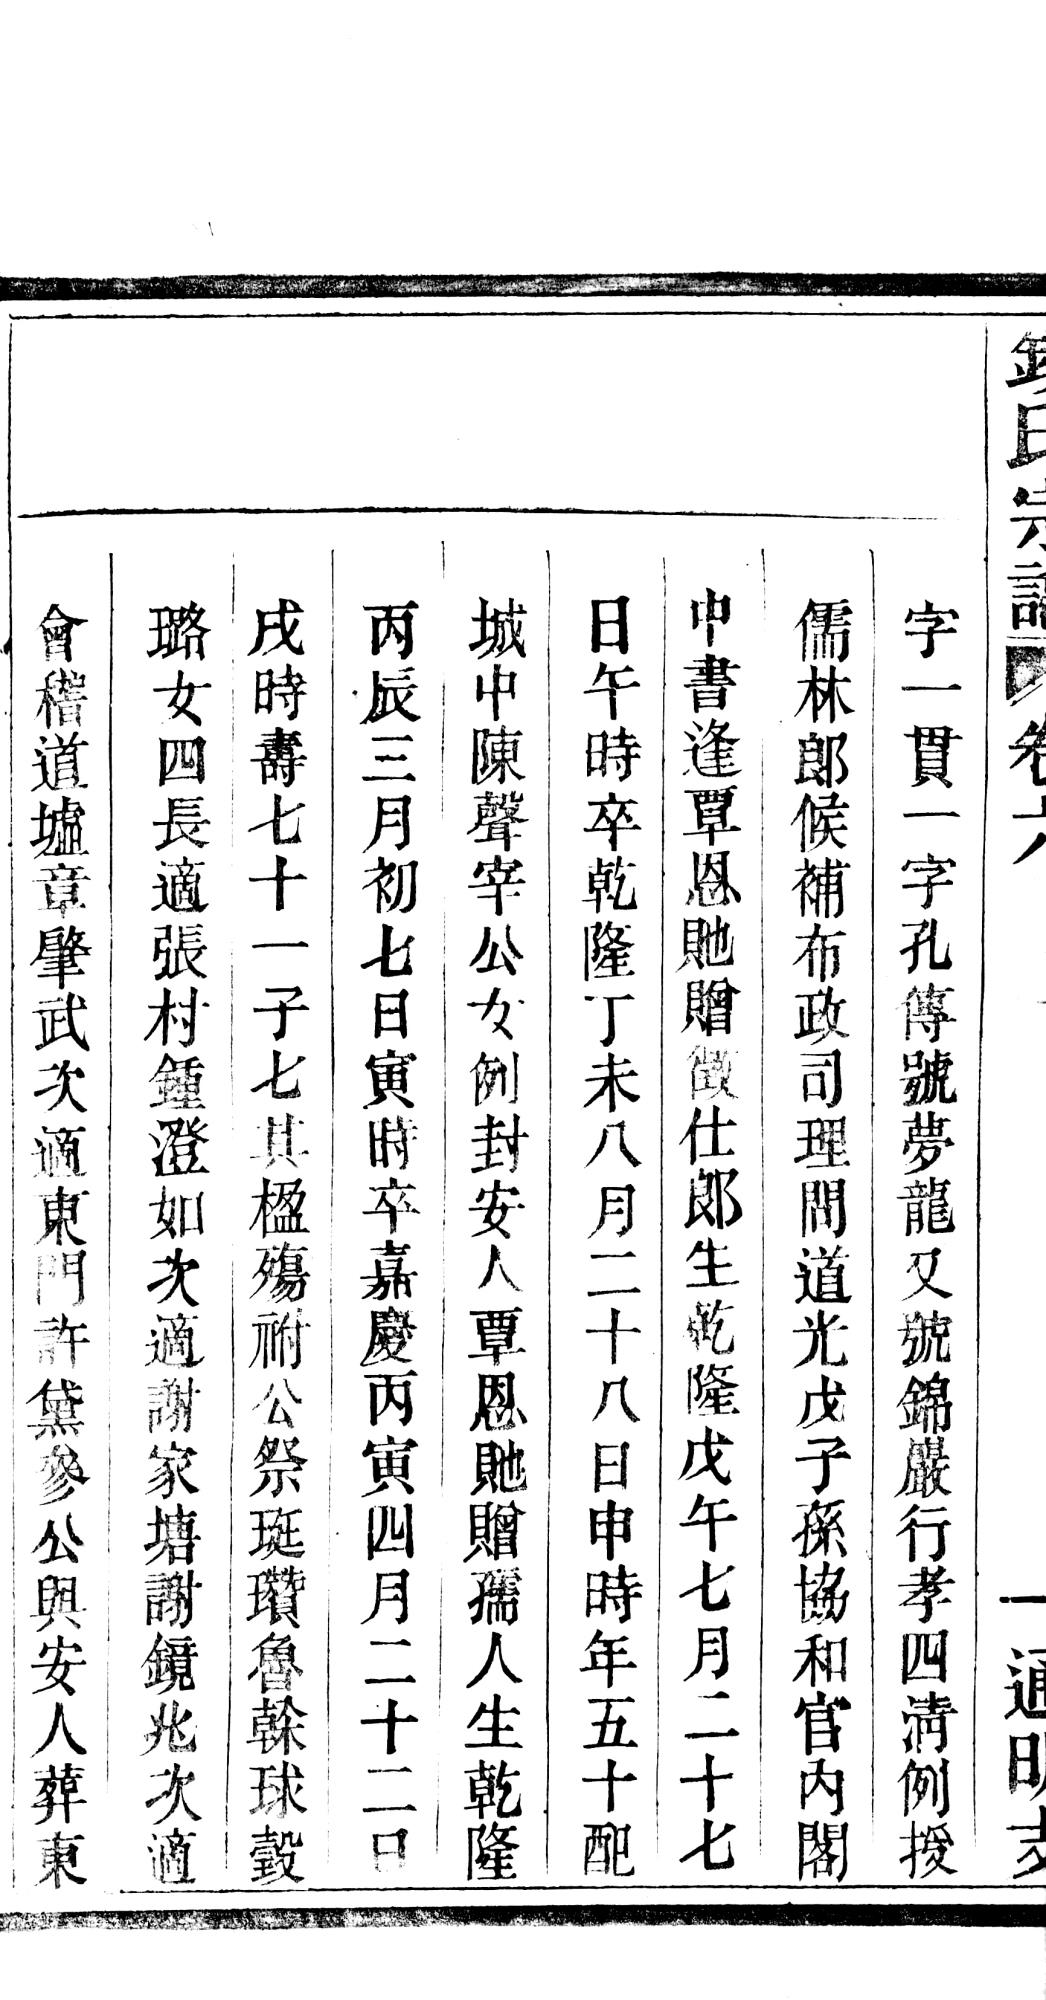 錢氏宗譜 卷六 一 通明支
字一貫一字孔傳號夢龍又號錦巖行孝四淸例授
儒林郎候補布政司理問道光戊子孫協和官內閣
中書逢覃恩貤贈徵仕郎生乾隆戊午七月二十七
日午時卒乾隆丁未八月二十八日申時年五十配
城中陳聲宰公女例封安人覃恩貤贈孺人生乾隆
丙辰三月初七日寅時卒嘉慶丙寅四月二十二日
戌時壽七十一子七其楹殤祔公祭珽瓚魯榦球瑴
璐女四長適張村鍾澄如次適謝家塘謝鏡兆次適
會稽道墟章肇武次適東門許黛參公與安人葬東